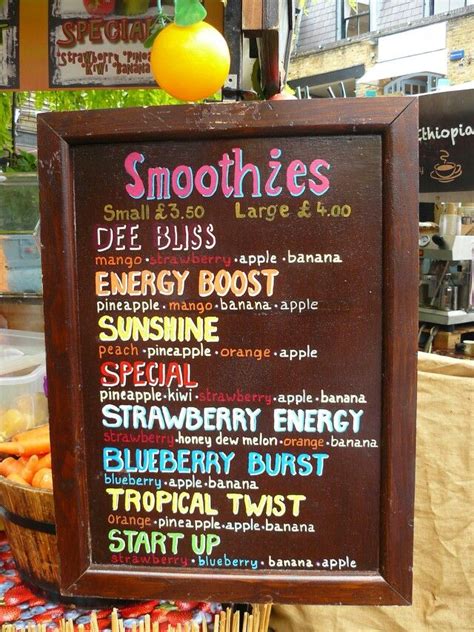 SPECIAL
Strawberry Pine
Kiwi Banana
Ethiopia
Smoothies
Small £3.50 Large £4.00
DEE BLISS
mango·strawberry·apple·banana
ENERGY BOOST
pineapple·mango·banana·apple
SUNSHINE
peach·pineapple·orange·apple
SPECIAL
pineapple·kiwi·strawberry·apple·banana
STRAWBERRY ENERGY
strawberry·honey dew melon·orange·banana
BLUEBERRY BURST
blueberry·apple·banana
TROPICAL TWIST
orange·pineapple·apple·banana
START UP
strawberry·blueberry·banana·apple